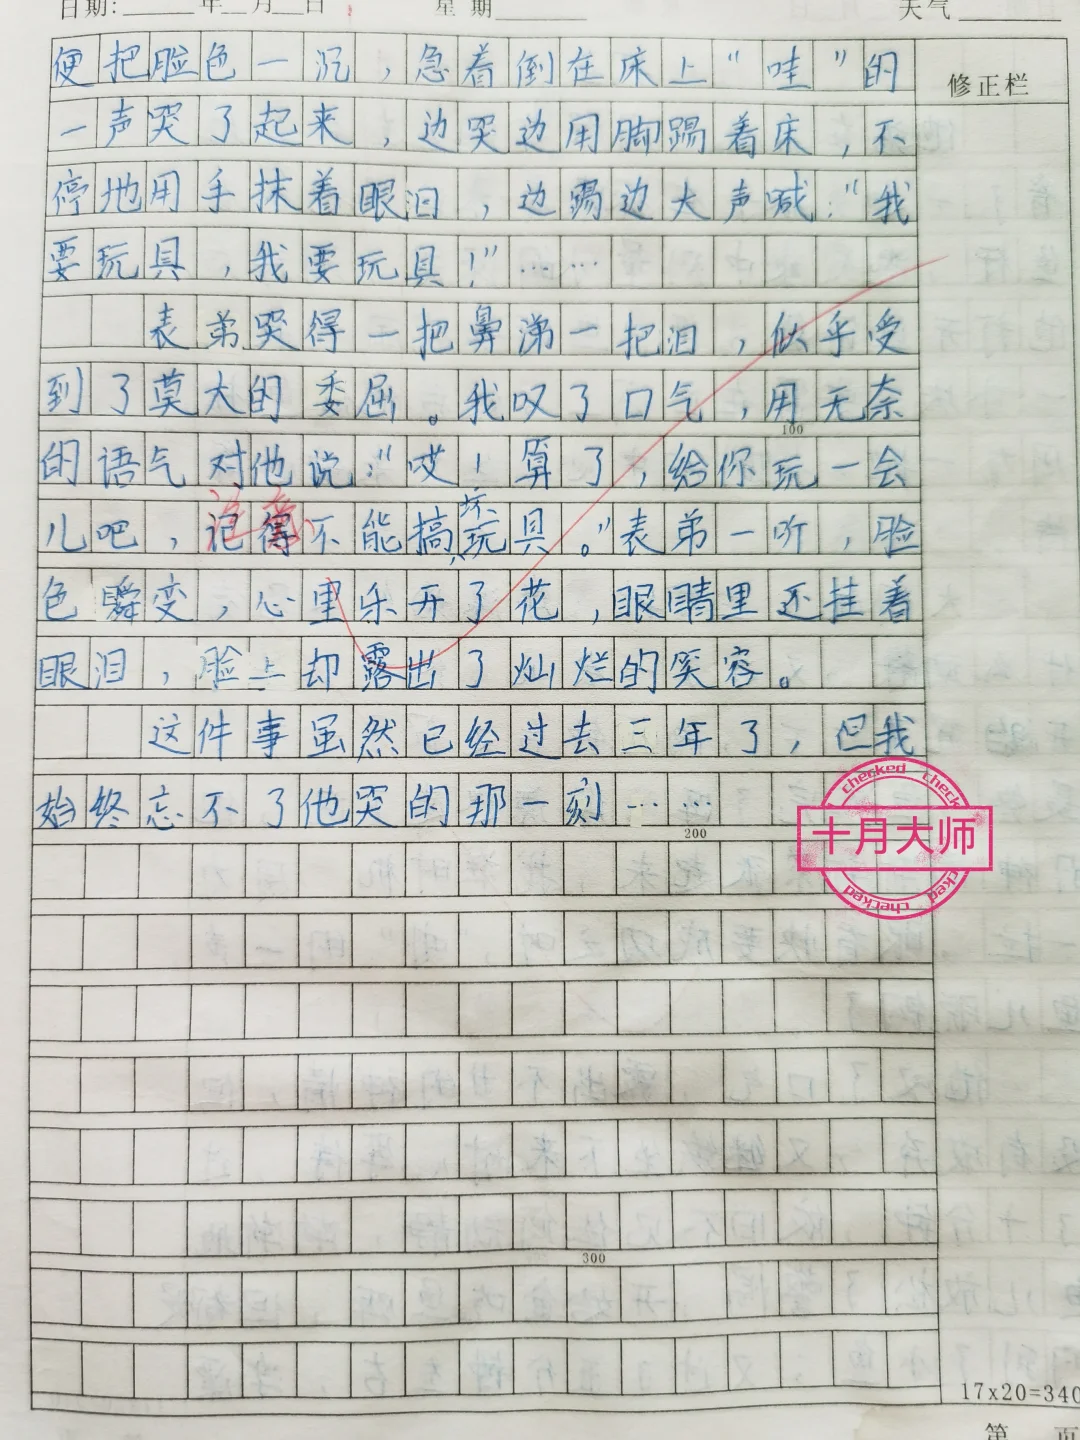 日期:____年__月__日 星期______ 天气______
修正栏
便把脸色一沉，急着倒在床上“哇”的
一声哭了起来，边哭边用脚踢着床，不
停地用手抹着眼泪，边踢边大声喊：“我
要玩具，我要玩具！”……
表弟哭得一把鼻涕一把泪，似乎受
到了莫大的委屈。我叹了口气，用无奈
100
的语气对他说：“哎！算了，给你玩一会
儿吧，记得不能搞坏玩具。”表弟一听，脸
色瞬变，心里乐开了花，眼睛里还挂着
眼泪，脸上却露出了灿烂的笑容。
这件事虽然已经过去三年了，但我
始终忘不了他哭的那一刻……
200
checked checked
十月大师
checked checked
300
17x20=340
第 页